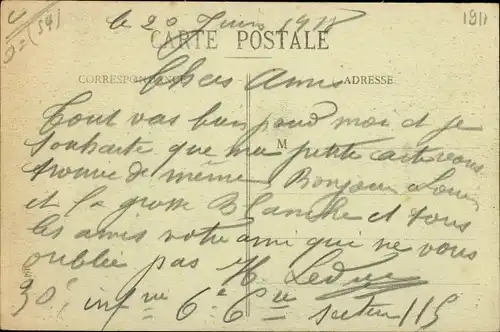 le 20 Juin 1918
1911
D=(54)
CARTE POSTALE
CORRESPONDANCE
ADRESSE
Chers Amis
Tout vas bien pour moi et je
souhaite que ma petite carte vous
M
trouve de même Bonjour a Louis
et la grosse Blanche et tous
les amis votre ami qui ne vous
oublie pas H. Leduc
30e infrie 6e Cie secteur 115